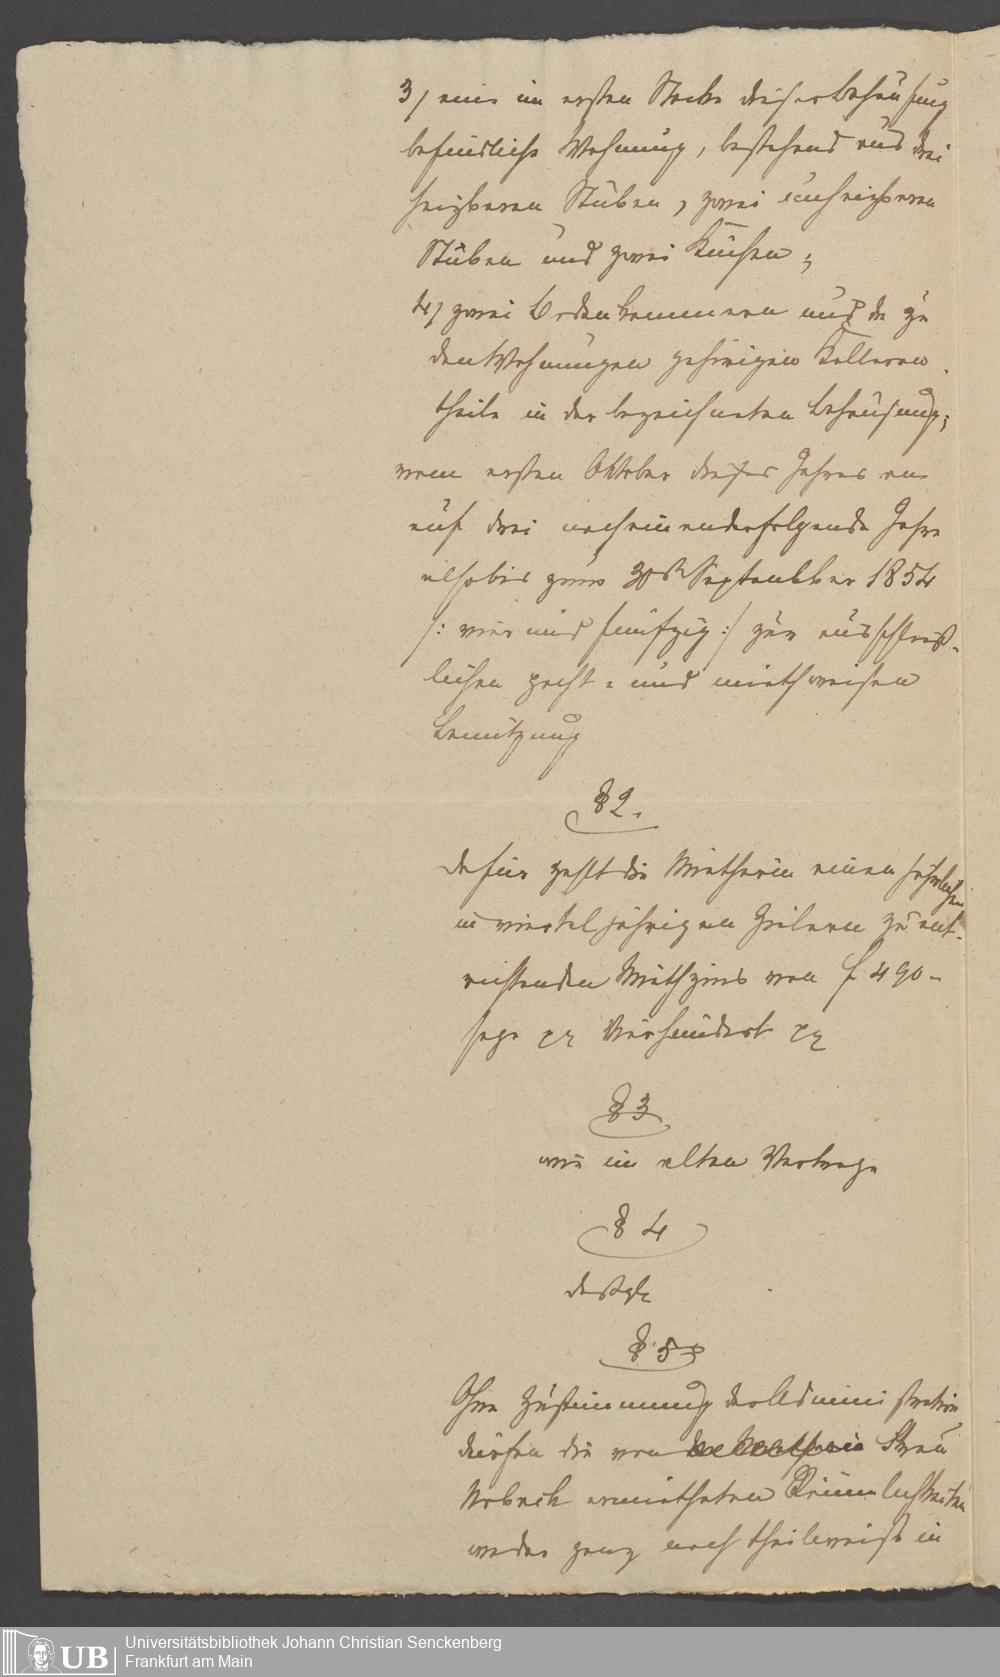 3) eine im ersten Stocke dieser Behausung
befindliche Wohnung, bestehend aus drei
heizbaren Stuben, zwei unheizbaren
Stuben und zwei Küchen;
4) zwei Bodenkammern und die zu
den Wohnungen gehörigen Keller
theile in der bezeichneten Behausung;
vom ersten Oktober dieses Jahres an
auf drei nacheinanderfolgende Jahre
also bis zum 30ten September 1854
/: vier und fünfzig :/ zur ausschließ-
lichen pacht- und miethweisen
Benützung
§ 2.
Dafür zahlt die Mietherin einen jährlichen
in vierteljährigen Zielern zu ent-
richtenden Miethzins von f 490-
sage Vierhundert
§ 3
wie im alten Vertrage
§ 4
§ 5
Ohne Zustimmung der Administration
dürfen die von Frau
ermietheten Räumlichkeiten
weder ganz noch theilweise in
Universitätsbibliothek Johann Christian Senckenberg
UB
Frankfurt am Main